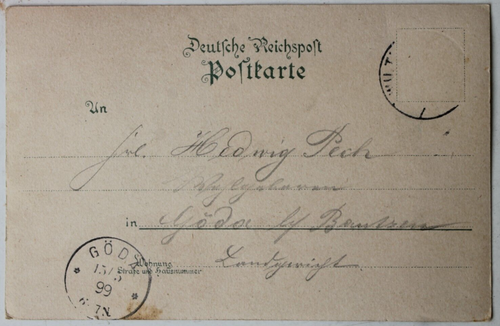 Deutsche Reichspost
Postkarte
An
Frl. Hedwig Pech
Wohlgeboren
in Göda b/ Bautzen
Wohnung
Straße und Hausnummer
Landgericht
GÖDA
99